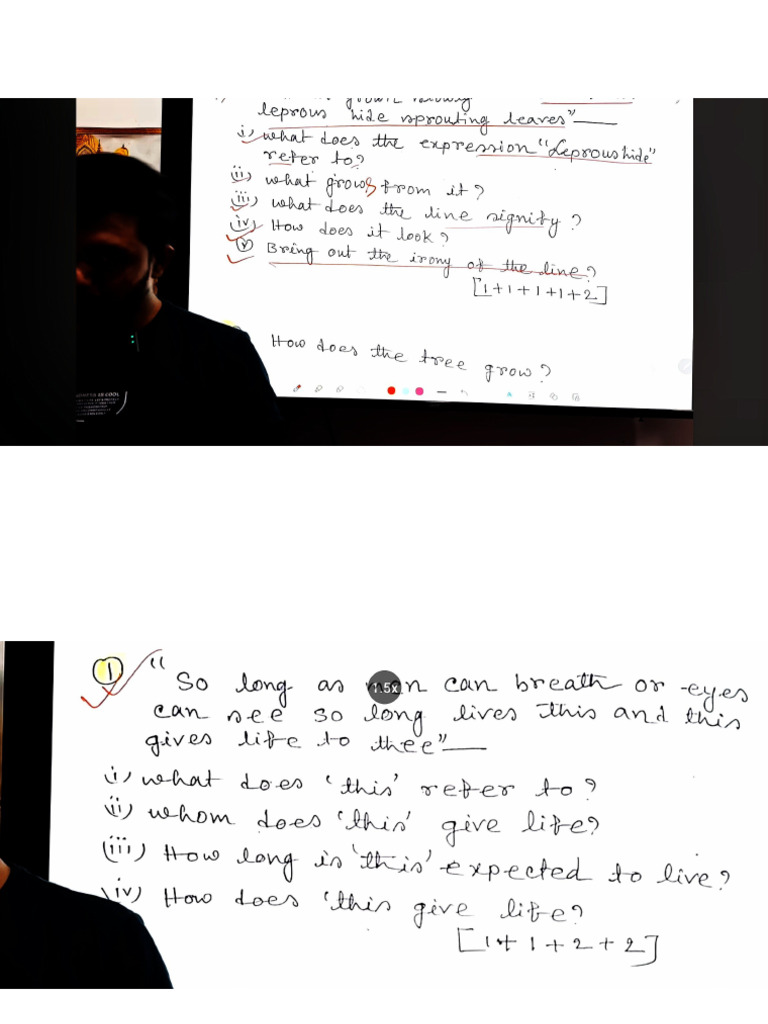 leprous hide sprouting leaves"—
i) what does the expression "Leprous hide"
refer to?
ii) what grows from it?
iii) what does the line signify?
iv) How does it look?
v) Bring out the irony of the line?
[1+1+1+1+2]
How does the tree grow?
1 "So long as men can breath or eyes
1.5x
can see so long lives this and this
gives life to thee"—
i) what does 'this' refer to?
ii) whom does 'this' give life?
(iii) How long is 'this' expected to live?
iv) How does 'this give life?
[1+1+2+2]